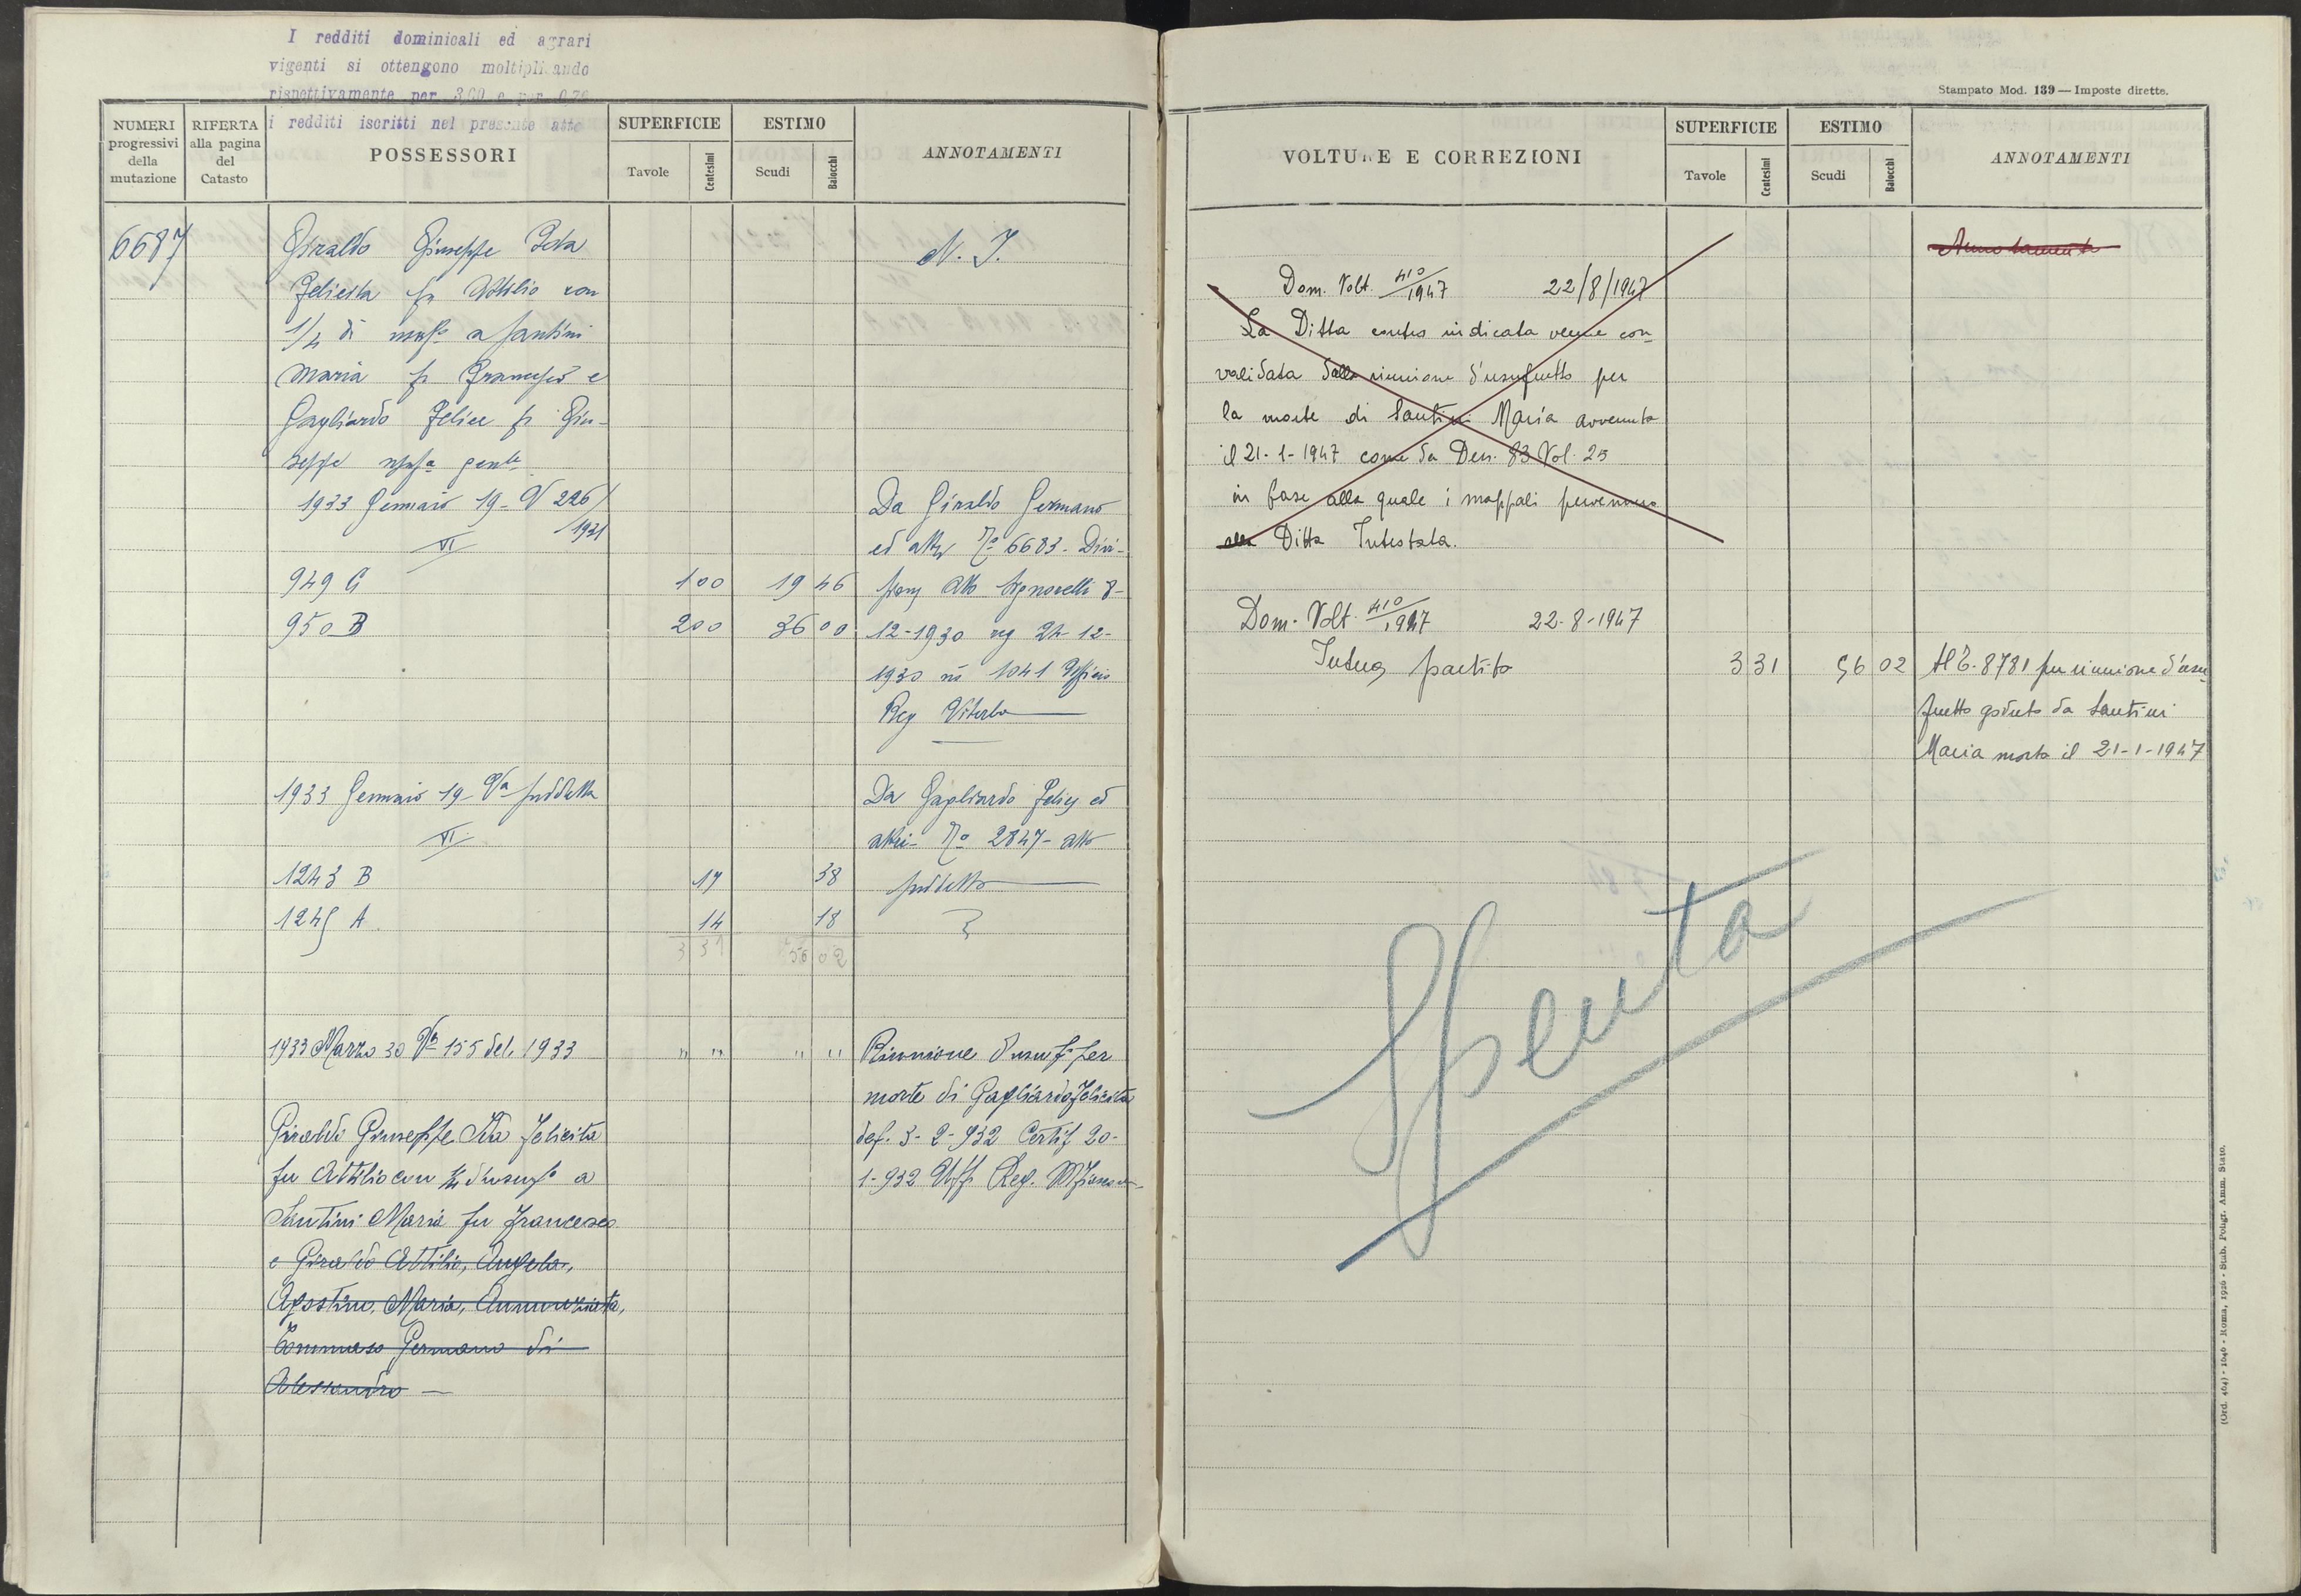 I redditi dominicali ed agrari
vigenti si ottengono moltiplicando
rispettivamente per 3,60 e per 0,76
i redditi iscritti nel presente atto
NUMERI progressivi della mutazione
RIFERTA alla pagina del Catasto
POSSESSORI
SUPERFICIE
Tavole
Centesimi
ESTIMO
Scudi
Baiocchi
ANNOTAMENTI
6687
Giraldo Giuseppe Ida
Felicita fu Attilio con
1/4 di a Santini
Maria fu Francesco e
Gagliardo Felice fu Giu-
seppe
1933 Gennaio 19 - V 226/
1931
VI
949 G 100 19 46
950 B 200 36 00
1933 Gennaio 19 - Va suddetta
VI
1243 B 17 38
1245 A 14 18
3 31 56 02
1933 Marzo 30 Va 155 del 1933 " " " "
Giraldi Giuseppe Ida Felicita
fu Attilio con 1/4 d'usuf° a
Santini Maria fu Francesco
e Giraldo Attilio, Angela,
Agostino, Maria, Annunziata,
Tommaso Germano di
Alessandro —
N. I.
Da Giraldo Germano
ed altri N° 6683. Divi-
Atto Signorelli 8-
12-1930 reg 24-12-
1930 n° 1041 Ufficio
Reg Viterbo
Da Gagliardo Felice ed
altri - N° 2847 - atto
suddetto
Riunione d'usuf° per
morte di Gagliardo Felicita
def. 3-2-932 Certif 20-
1-932 Uff Reg.
Stampato Mod. 139 — Imposte dirette.
VOLTURE E CORREZIONI
SUPERFICIE
Tavole
Centesimi
ESTIMO
Scudi
Baiocchi
ANNOTAMENTI
Dom. Volt. 410/1947 22/8/1947
La Ditta contro indicata venne con-
validata dalla riunione d'usufrutto per
la morte di Santini Maria avvenuta
il 21-1-1947 come da Den. 83 Vol. 25
in base alla quale i mappali pervennero
alla Ditta Intestata.
Dom. Volt. 410/1947 22-8-1947
Intera partita 3 31 56 02
Al T. 8781 per riunione d'usu-
frutto goduto da Santini
Maria morta il 21-1-1947
Spenta
(Ord. 464) - 1646 - Roma, 1926 - Stab. Poligr. Amm. Stato.